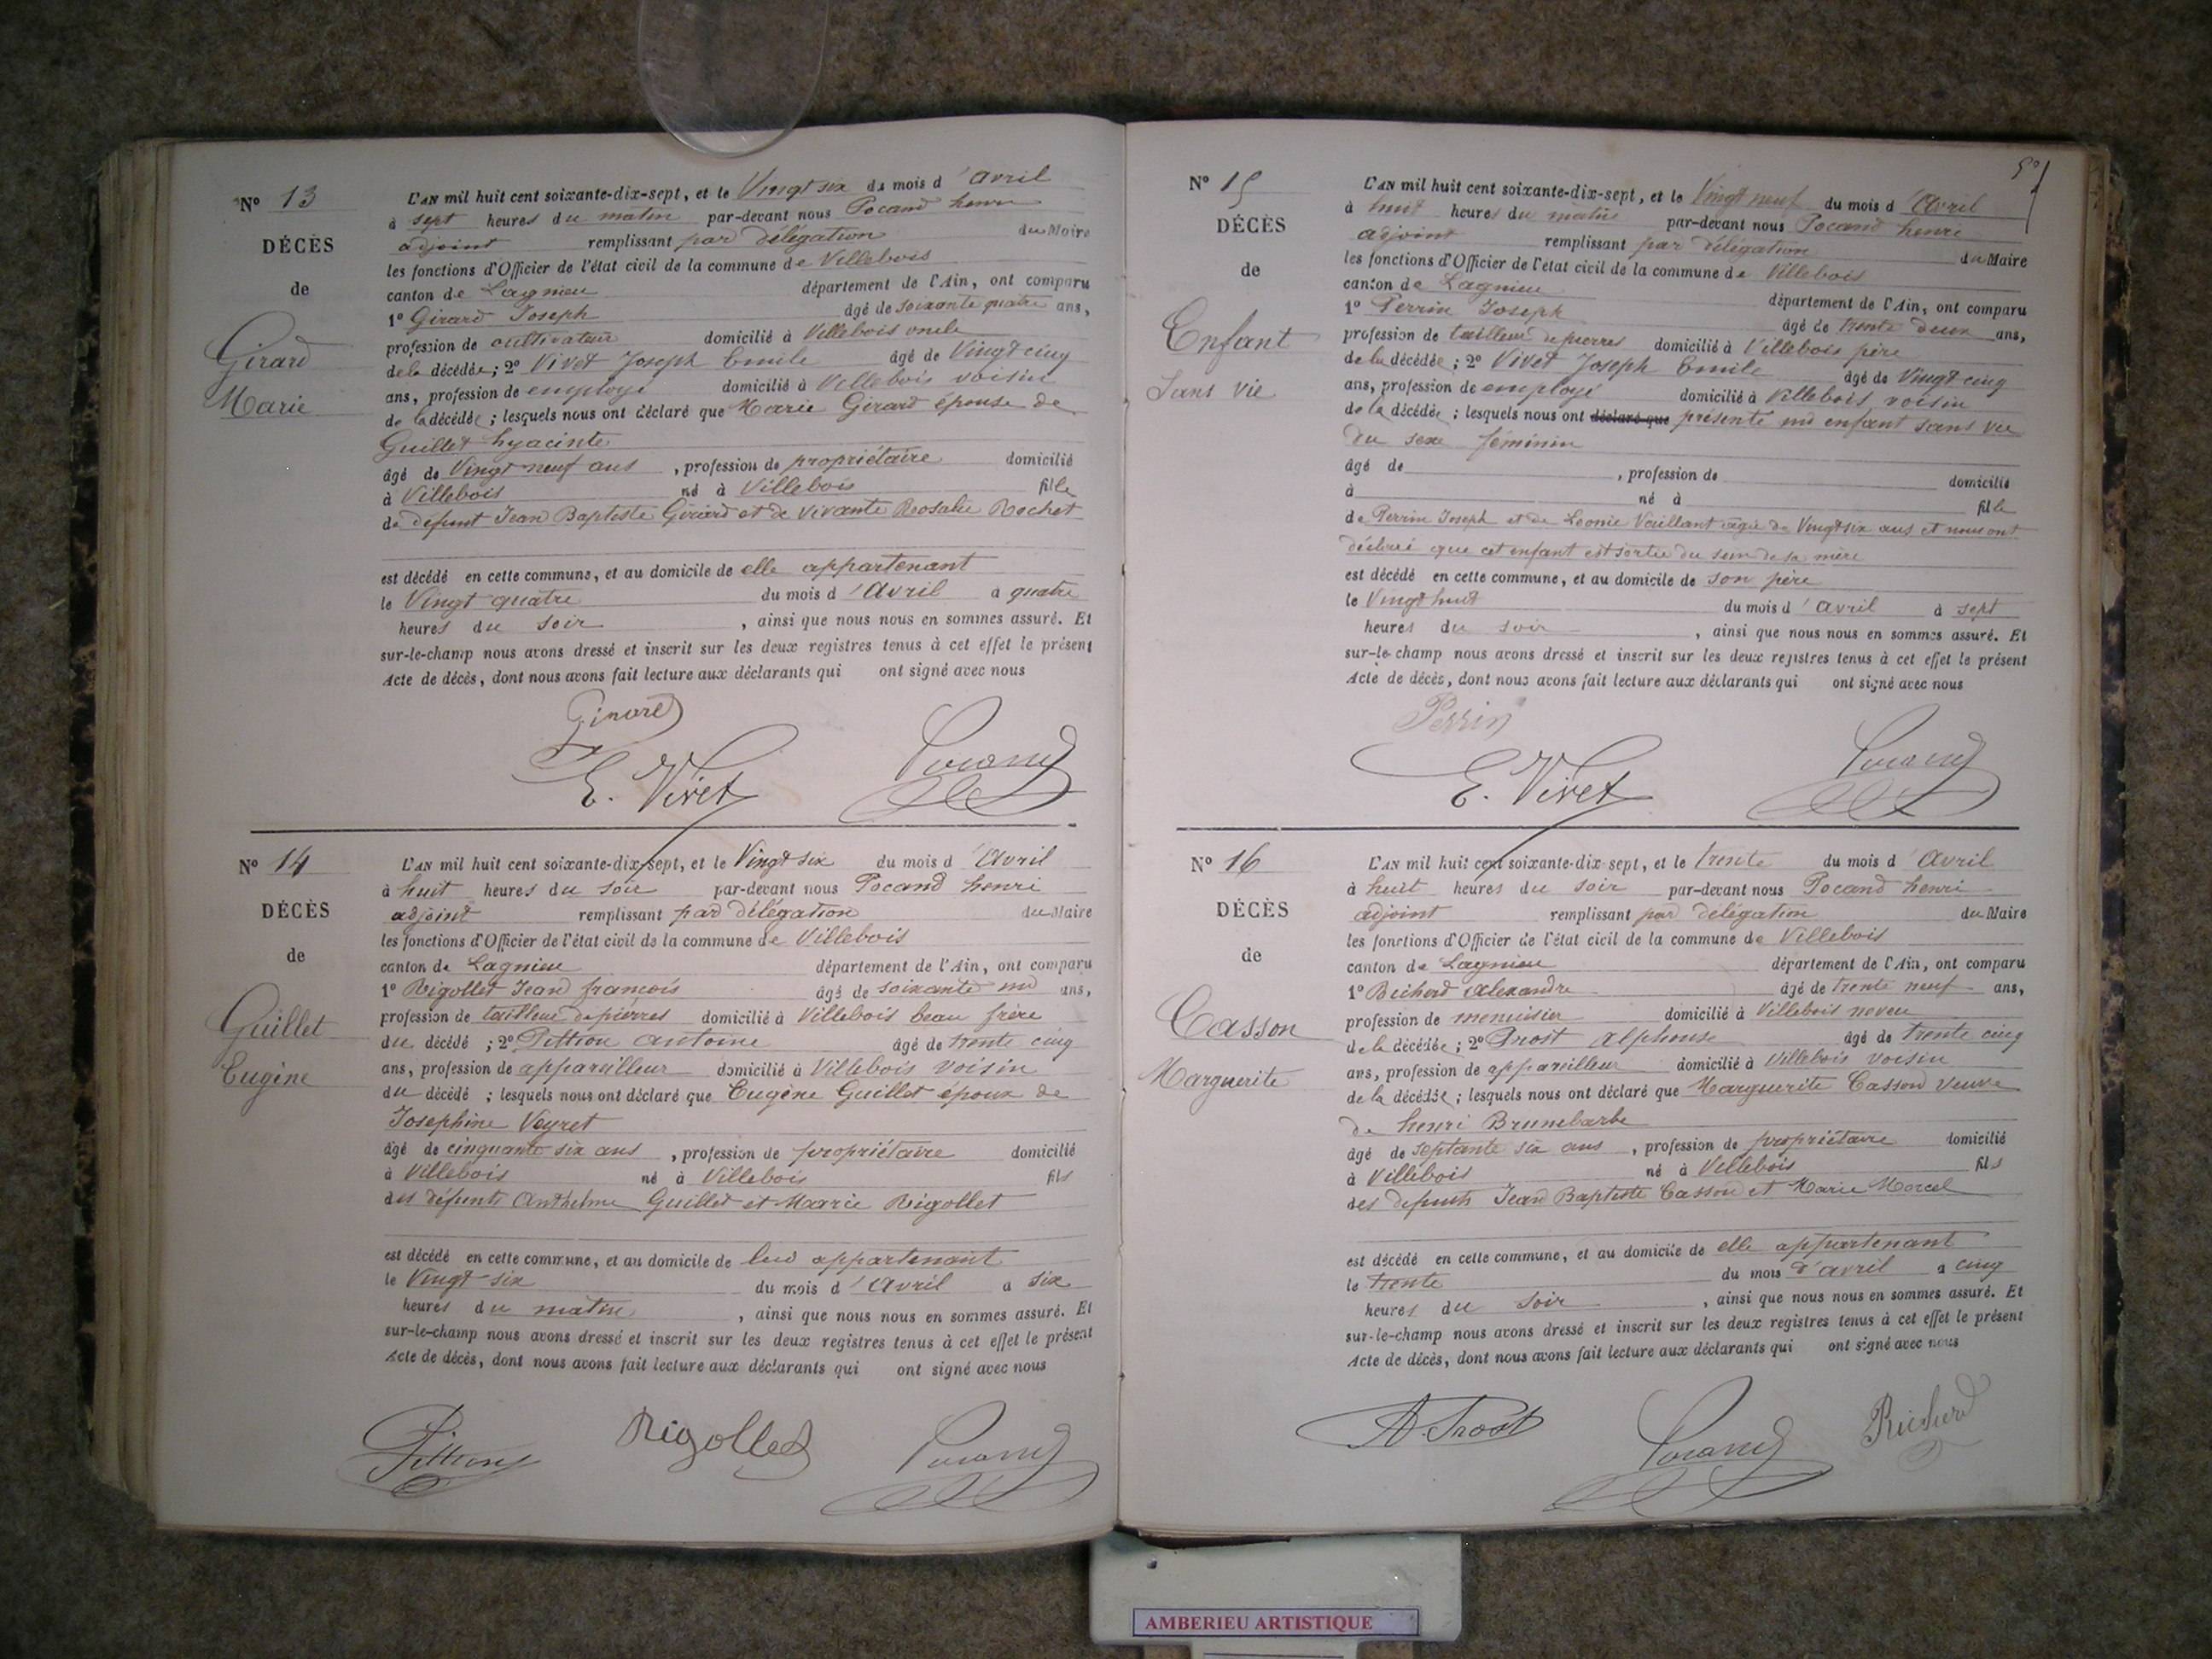 Nº 13
DÉCÈS
de
Girard
Marie
L'AN mil huit cent soixante-dix-sept, et le Vingt six du mois d'Avril
à sept heures du matin par-devant nous Pocand henri
adjoint remplissant par délégation du Maire
les fonctions d'Officier de l'état civil de la commune de Villebois
canton de Lagnieu département de l'Ain, ont comparu
1º Girard Joseph âgé de soixante quatre ans,
profession de cultivateur domicilié à Villebois oncle
de la décédée; 2º Vivet Joseph Emile âgé de Vingt cinq
ans, profession de employé domicilié à Villebois voisin
de la décédée; lesquels nous ont déclaré que Marie Girard épouse de
Guillet hyacinte
âgé de Vingt neuf ans, profession de propriétaire domicilié
à Villebois né à Villebois fille
de défunt Jean Baptiste Girard et de vivante Rosalie Rochet
est décédé en cette commune, et au domicile de elle appartenant
le Vingt quatre du mois d'Avril à quatre
heures du soir, ainsi que nous nous en sommes assuré. Et
sur-le-champ nous avons dressé et inscrit sur les deux registres tenus à cet effet le présent
Acte de décès, dont nous avons fait lecture aux déclarants qui ont signé avec nous
Girard
E. Vivet
Pocand
Nº 14
DÉCÈS
de
Guillet
Eugène
L'AN mil huit cent soixante-dix-sept, et le Vingt six du mois d'Avril
à huit heures du soir par-devant nous Pocand henri
adjoint remplissant par délégation du Maire
les fonctions d'Officier de l'état civil de la commune de Villebois
canton de Lagnieu département de l'Ain, ont comparu
1º Rigollet Jean françois âgé de soixante un ans,
profession de tailleur de pierres domicilié à Villebois beau frère
du décédé; 2º Pittion Antoine âgé de trente cinq
ans, profession de appareilleur domicilié à Villebois voisin
du décédé; lesquels nous ont déclaré que Eugène Guillet époux de
Josephine Veyret
âgé de cinquante six ans, profession de propriétaire domicilié
à Villebois né à Villebois fils
des défunts Anthelme Guillet et Marie Rigollet
est décédé en cette commune, et au domicile de lui appartenant
le Vingt six du mois d'Avril à six
heures du matin, ainsi que nous nous en sommes assuré. Et
sur-le-champ nous avons dressé et inscrit sur les deux registres tenus à cet effet le présent
Acte de décès, dont nous avons fait lecture aux déclarants qui ont signé avec nous
Pittion
Rigollet
Pocand
Nº 15
DÉCÈS
de
Enfant
Sans vie
L'AN mil huit cent soixante-dix-sept, et le Vingt neuf du mois d'Avril
à huit heures du matin par-devant nous Pocand henri
adjoint remplissant par délégation du Maire
les fonctions d'Officier de l'état civil de la commune de Villebois
canton de Lagnieu département de l'Ain, ont comparu
1º Perrin Joseph âgé de trente deux ans,
profession de tailleur de pierres domicilié à Villebois père
de la décédée; 2º Vivet Joseph Emile âgé de Vingt cinq
ans, profession de employé domicilié à Villebois voisin
de la décédée; lesquels nous ont déclaré que présenté un enfant sans vie
du sexe féminin
âgé de , profession de domicilié
à né à fille
de Perrin Joseph et de Leonie Vaillant agée de Vingt six ans et nous ont
déclaré que cet enfant est sortie du sein de sa mère
est décédé en cette commune, et au domicile de son père
le Vingt huit du mois d'Avril à sept
heures du soir, ainsi que nous nous en sommes assuré. Et
sur-le-champ nous avons dressé et inscrit sur les deux registres tenus à cet effet le présent
Acte de décès, dont nous avons fait lecture aux déclarants qui ont signé avec nous
Perrin
E. Vivet
Pocand
Nº 16
DÉCÈS
de
Casson
Marguerite
L'AN mil huit cent soixante-dix-sept, et le trente du mois d'Avril
à huit heures du soir par-devant nous Pocand henri
adjoint remplissant par délégation du Maire
les fonctions d'Officier de l'état civil de la commune de Villebois
canton de Lagnieu département de l'Ain, ont comparu
1º Alexandre âgé de trente neuf ans,
profession de menuisier domicilié à Villebois neveu
de la décédée; 2º Prost Alphonse âgé de trente cinq
ans, profession de appareilleur domicilié à Villebois voisin
de la décédée; lesquels nous ont déclaré que Marguerite Casson veuve
de henri Brunebarbe
âgé de septante six ans, profession de propriétaire domicilié
à Villebois né à Villebois fils
des defunts Jean Baptiste Casson et Marie Marcel
est décédé en cette commune, et au domicile de elle appartenant
le trente du mois d'avril à cinq
heures du soir, ainsi que nous nous en sommes assuré. Et
sur-le-champ nous avons dressé et inscrit sur les deux registres tenus à cet effet le présent
Acte de décès, dont nous avons fait lecture aux déclarants qui ont signé avec nous
A. Prost
Pocand
AMBERIEU ARTISTIQUE